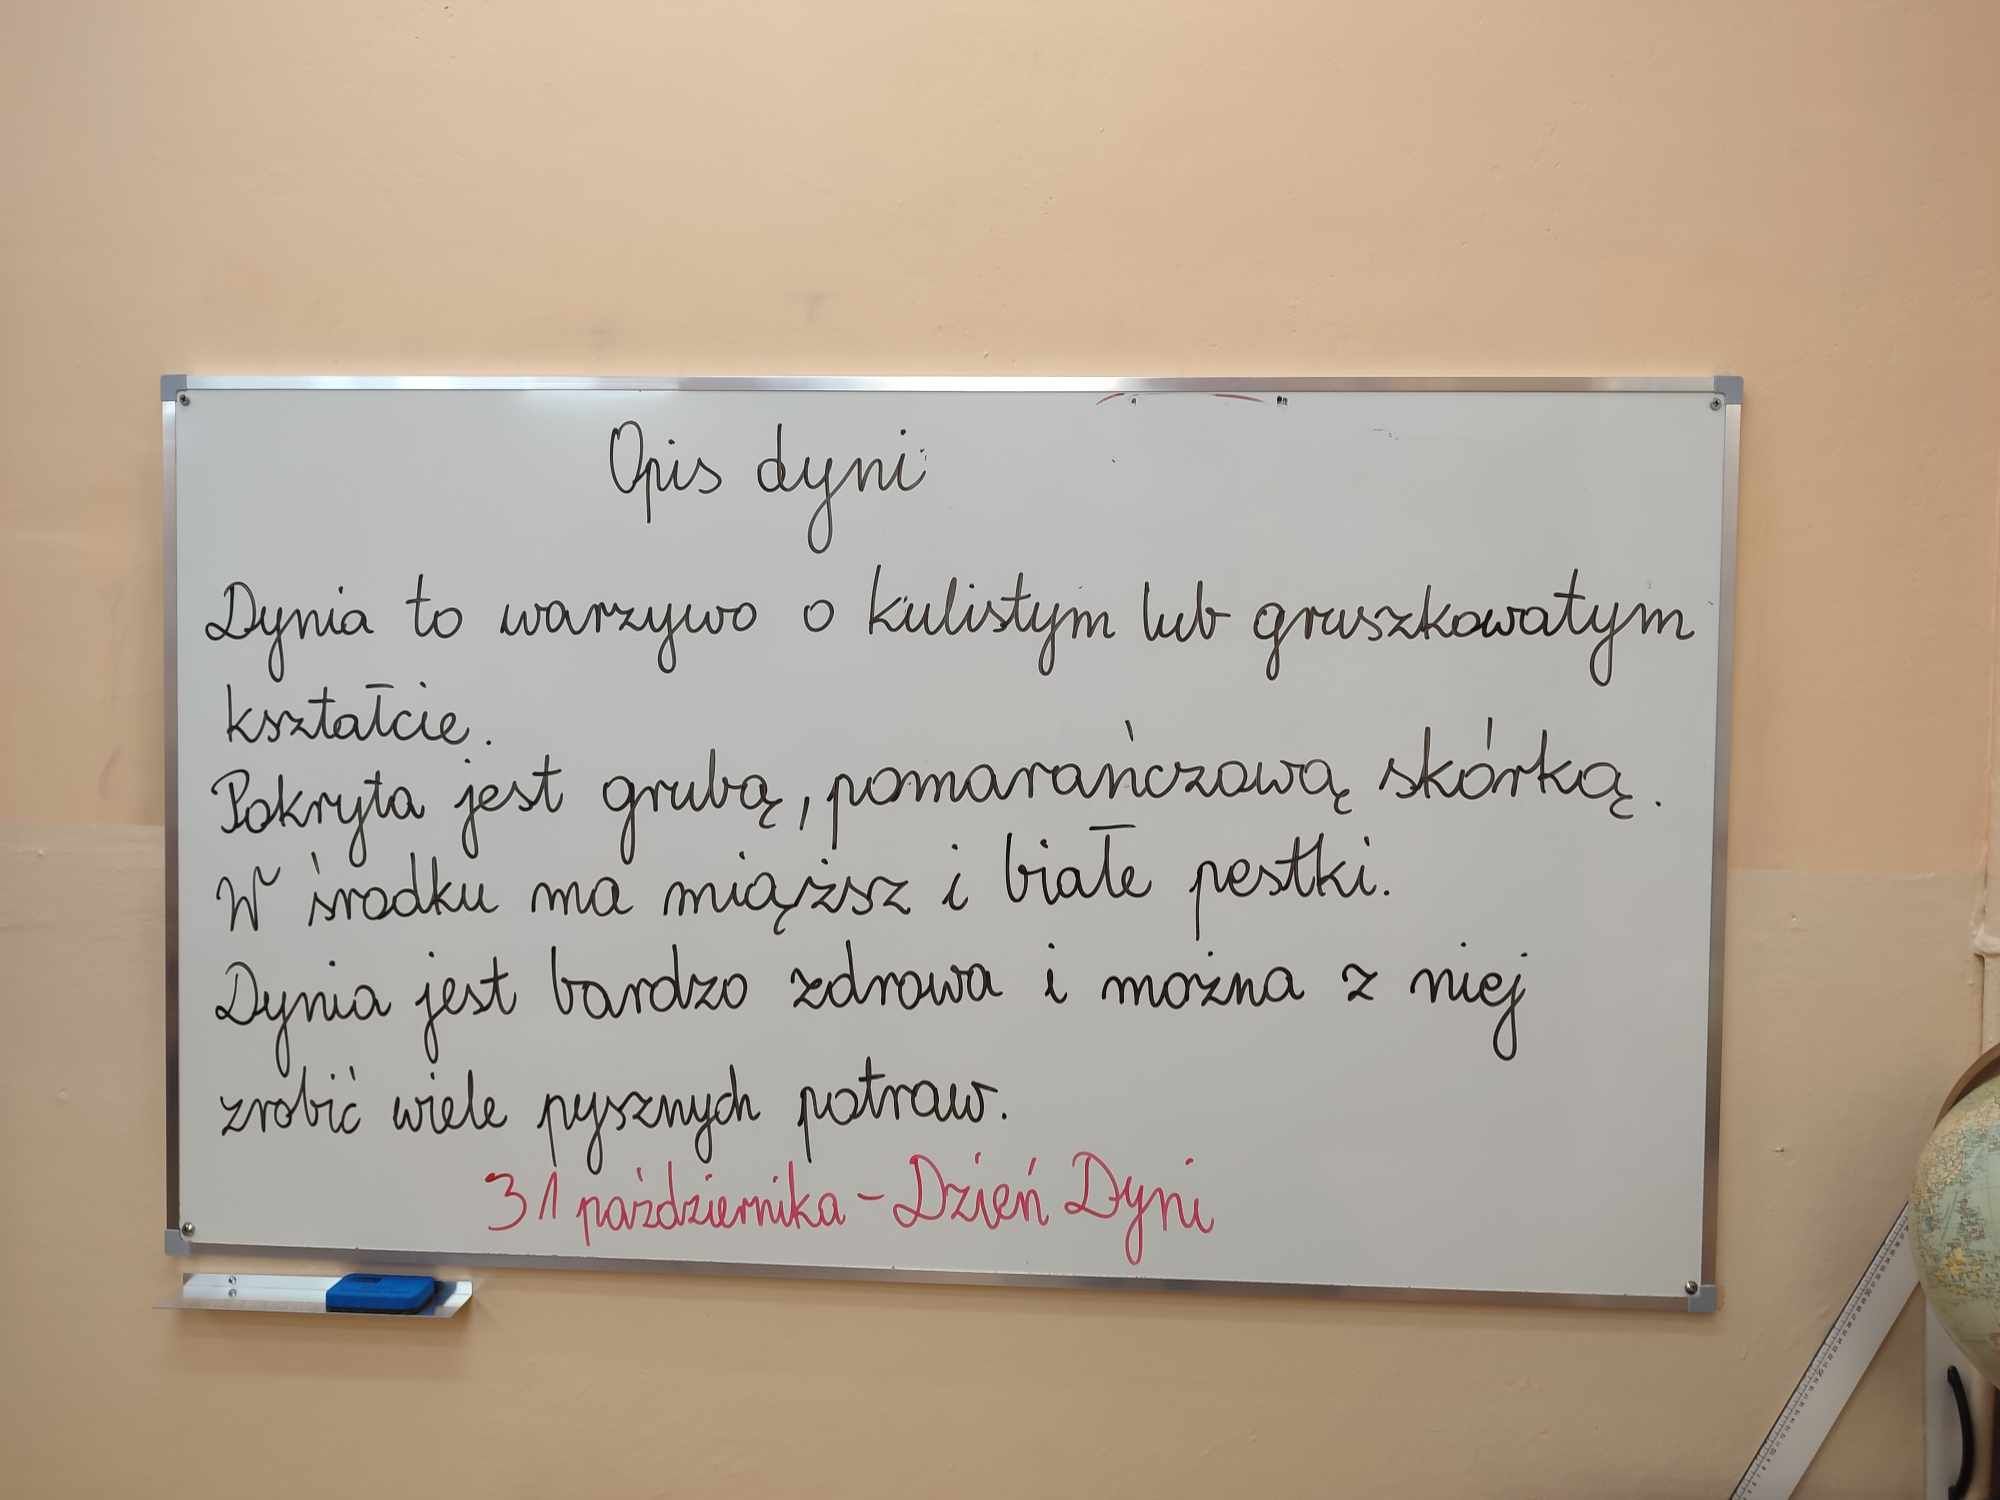 Opis dyni
Dynia to warzywo o kulistym lub gruszkowatym
kształcie.
Pokryta jest grubą, pomarańczową skórką.
W środku ma miąższ i białe pestki.
Dynia jest bardzo zdrowa i można z niej
zrobić wiele pysznych potraw.
31 października - Dzień Dyni